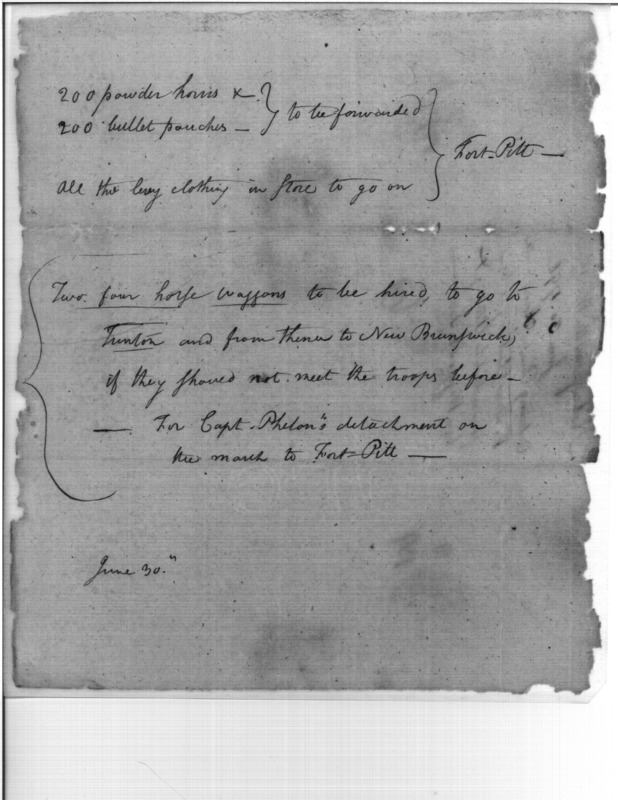 200 powder horns x. } to be forwarded
200 bullet pouches — } Fort-Pitt —
All the levy clothing in Store to go on
Two four horse waggons to be hired, to go to
Trenton and from thence to New Brunswick,
if they should not meet the troops before —
— For Capt. Phelon's detachment on
the march to Fort=Pitt —
June 30.th